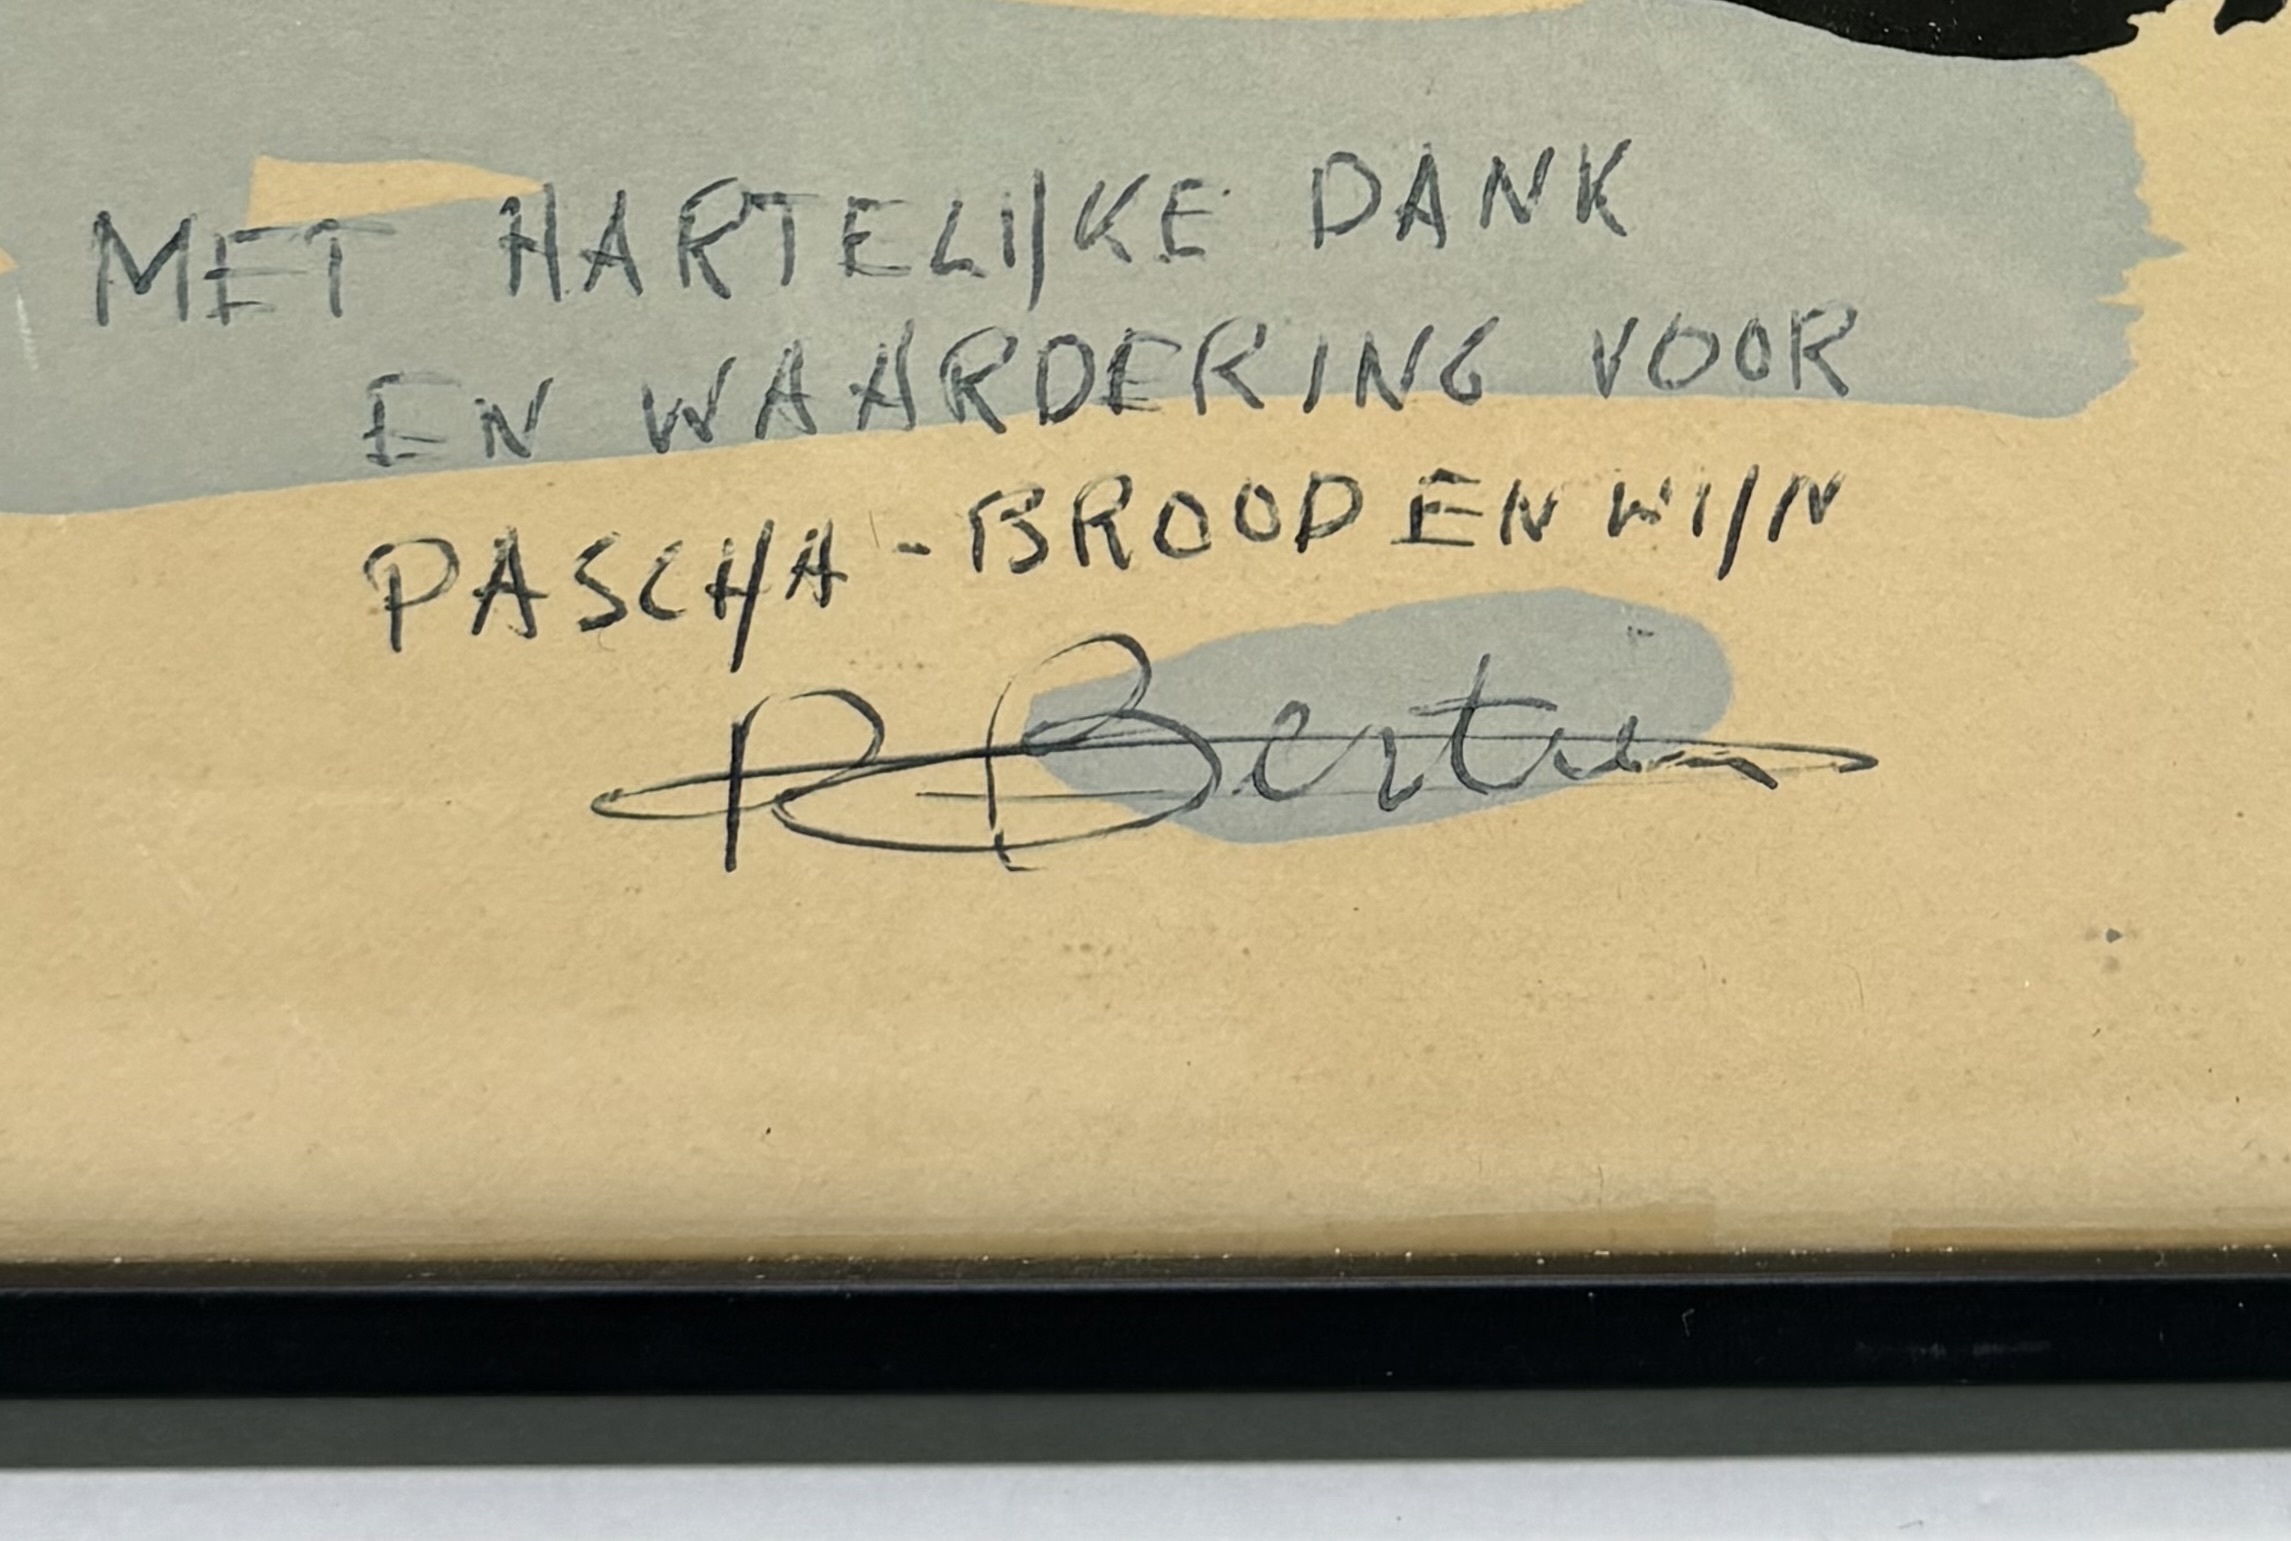 MET HARTELIJKE DANK
EN WAARDERING VOOR
PASCHA - BROOD EN WIJN
R Bertin